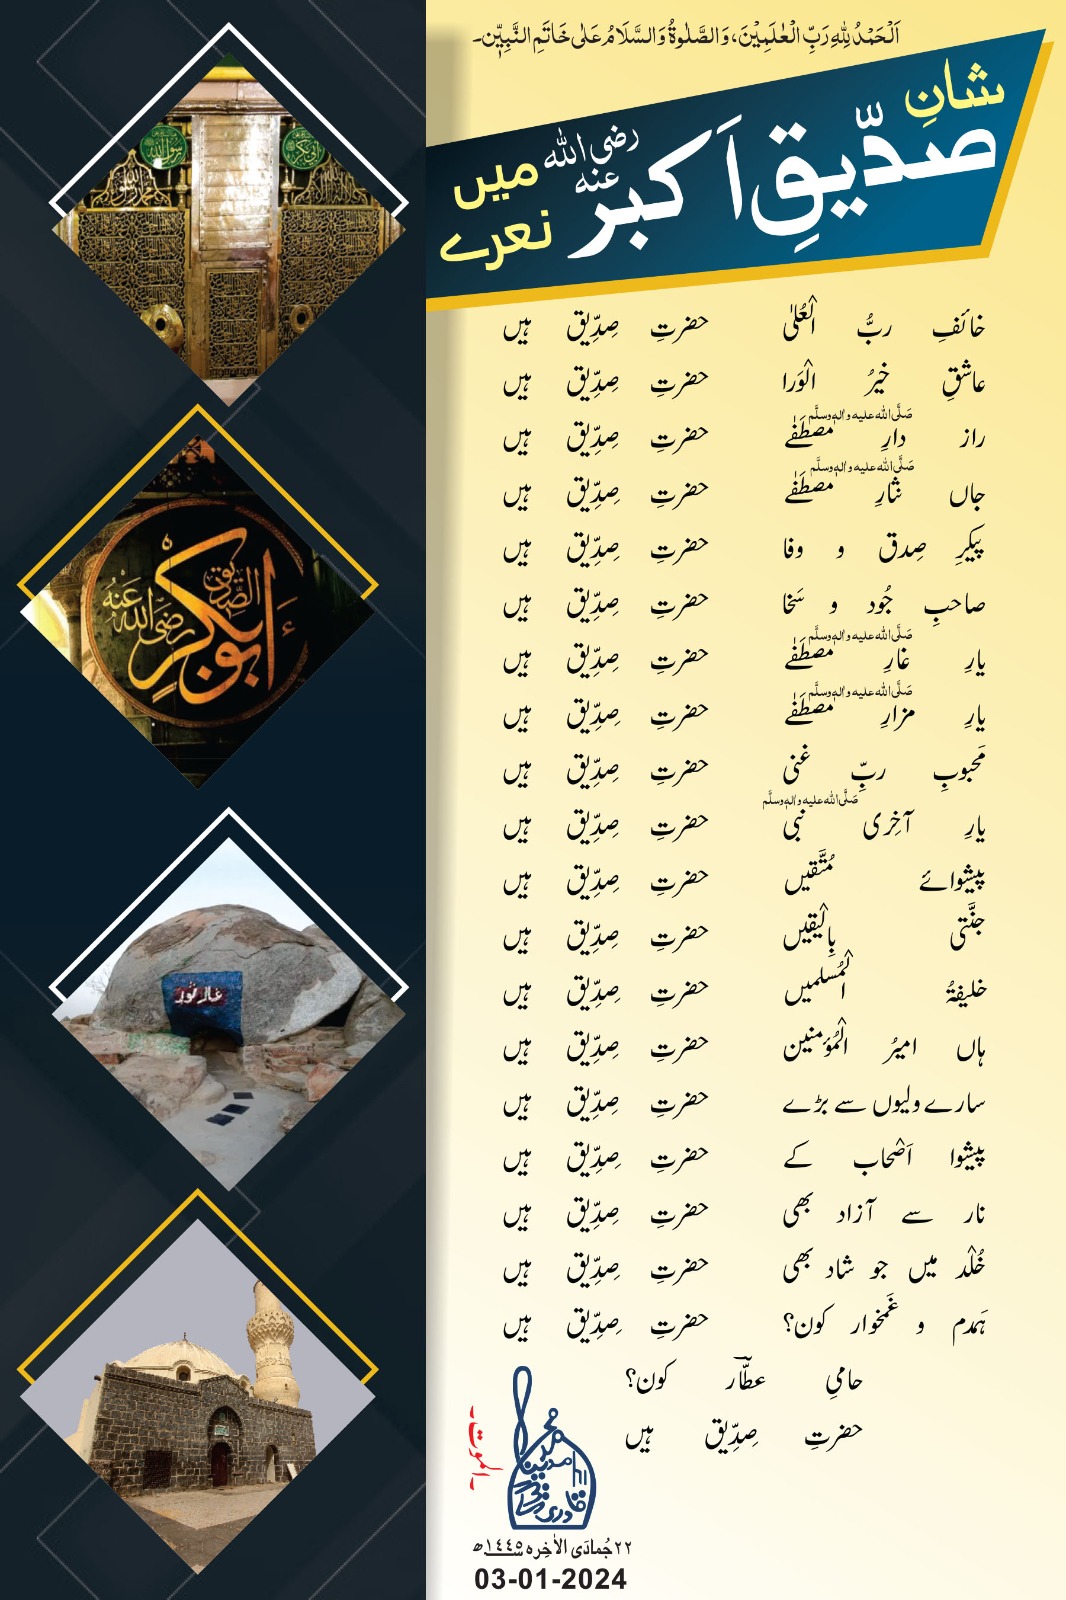 اَلْحَمْدُ لِلّٰهِ رَبِّ الْعٰلَمِیْنَ، وَالصَّلٰوةُ وَالسَّلَامُ عَلٰی خَاتَمِ النَّبِیّٖن۔
شانِ
صدّیقِ اَکبر رضی اللہ عنہ میں
نعرے
خائفِ ربُّ الْعُلیٰ حضرتِ صِدِّیق ہیں
عاشقِ خیرُ الْوَرا حضرتِ صِدِّیق ہیں
راز دارِ مصطَفٰے صَلَّی اللہ علیہ واٰلہٖ وسلَّم حضرتِ صِدِّیق ہیں
جاں نثارِ مصطَفٰے صَلَّی اللہ علیہ واٰلہٖ وسلَّم حضرتِ صِدِّیق ہیں
پیکرِ صِدق و وفا حضرتِ صِدِّیق ہیں
صاحبِ جُود و سَخا حضرتِ صِدِّیق ہیں
یارِ غارِ مصطَفٰے صَلَّی اللہ علیہ واٰلہٖ وسلَّم حضرتِ صِدِّیق ہیں
یارِ مزارِ مصطَفٰے صَلَّی اللہ علیہ واٰلہٖ وسلَّم حضرتِ صِدِّیق ہیں
مَحبوبِ ربِّ غنی حضرتِ صِدِّیق ہیں
یارِ آخِری نبی صَلَّی اللہ علیہ واٰلہٖ وسلَّم حضرتِ صِدِّیق ہیں
پیشوائے مُتَّقیں حضرتِ صِدِّیق ہیں
جنَّتی بِالْیقیں حضرتِ صِدِّیق ہیں
خلیفۃُ الْمُسلمیں حضرتِ صِدِّیق ہیں
ہاں امیرُ الْمُؤمنین حضرتِ صِدِّیق ہیں
سارے ولیوں سے بڑے حضرتِ صِدِّیق ہیں
پیشوا اَصْحاب کے حضرتِ صِدِّیق ہیں
نار سے آزاد بھی حضرتِ صِدِّیق ہیں
خُلْد میں جو شاد بھی حضرتِ صِدِّیق ہیں
ہَمدم و غَمخوار کون؟ حضرتِ صِدِّیق ہیں
حامیِ عطّار کون؟
حضرتِ صِدِّیق ہیں
۔الموت۔
۲۲ جُمادَی الاٰخِرہ ۱٤٤٥ھ
03-01-2024
رسول اللہ
ابی بکر
ابوبکر الصدیق رَضِیَ اللہُ عَنْہُ
غار ثور